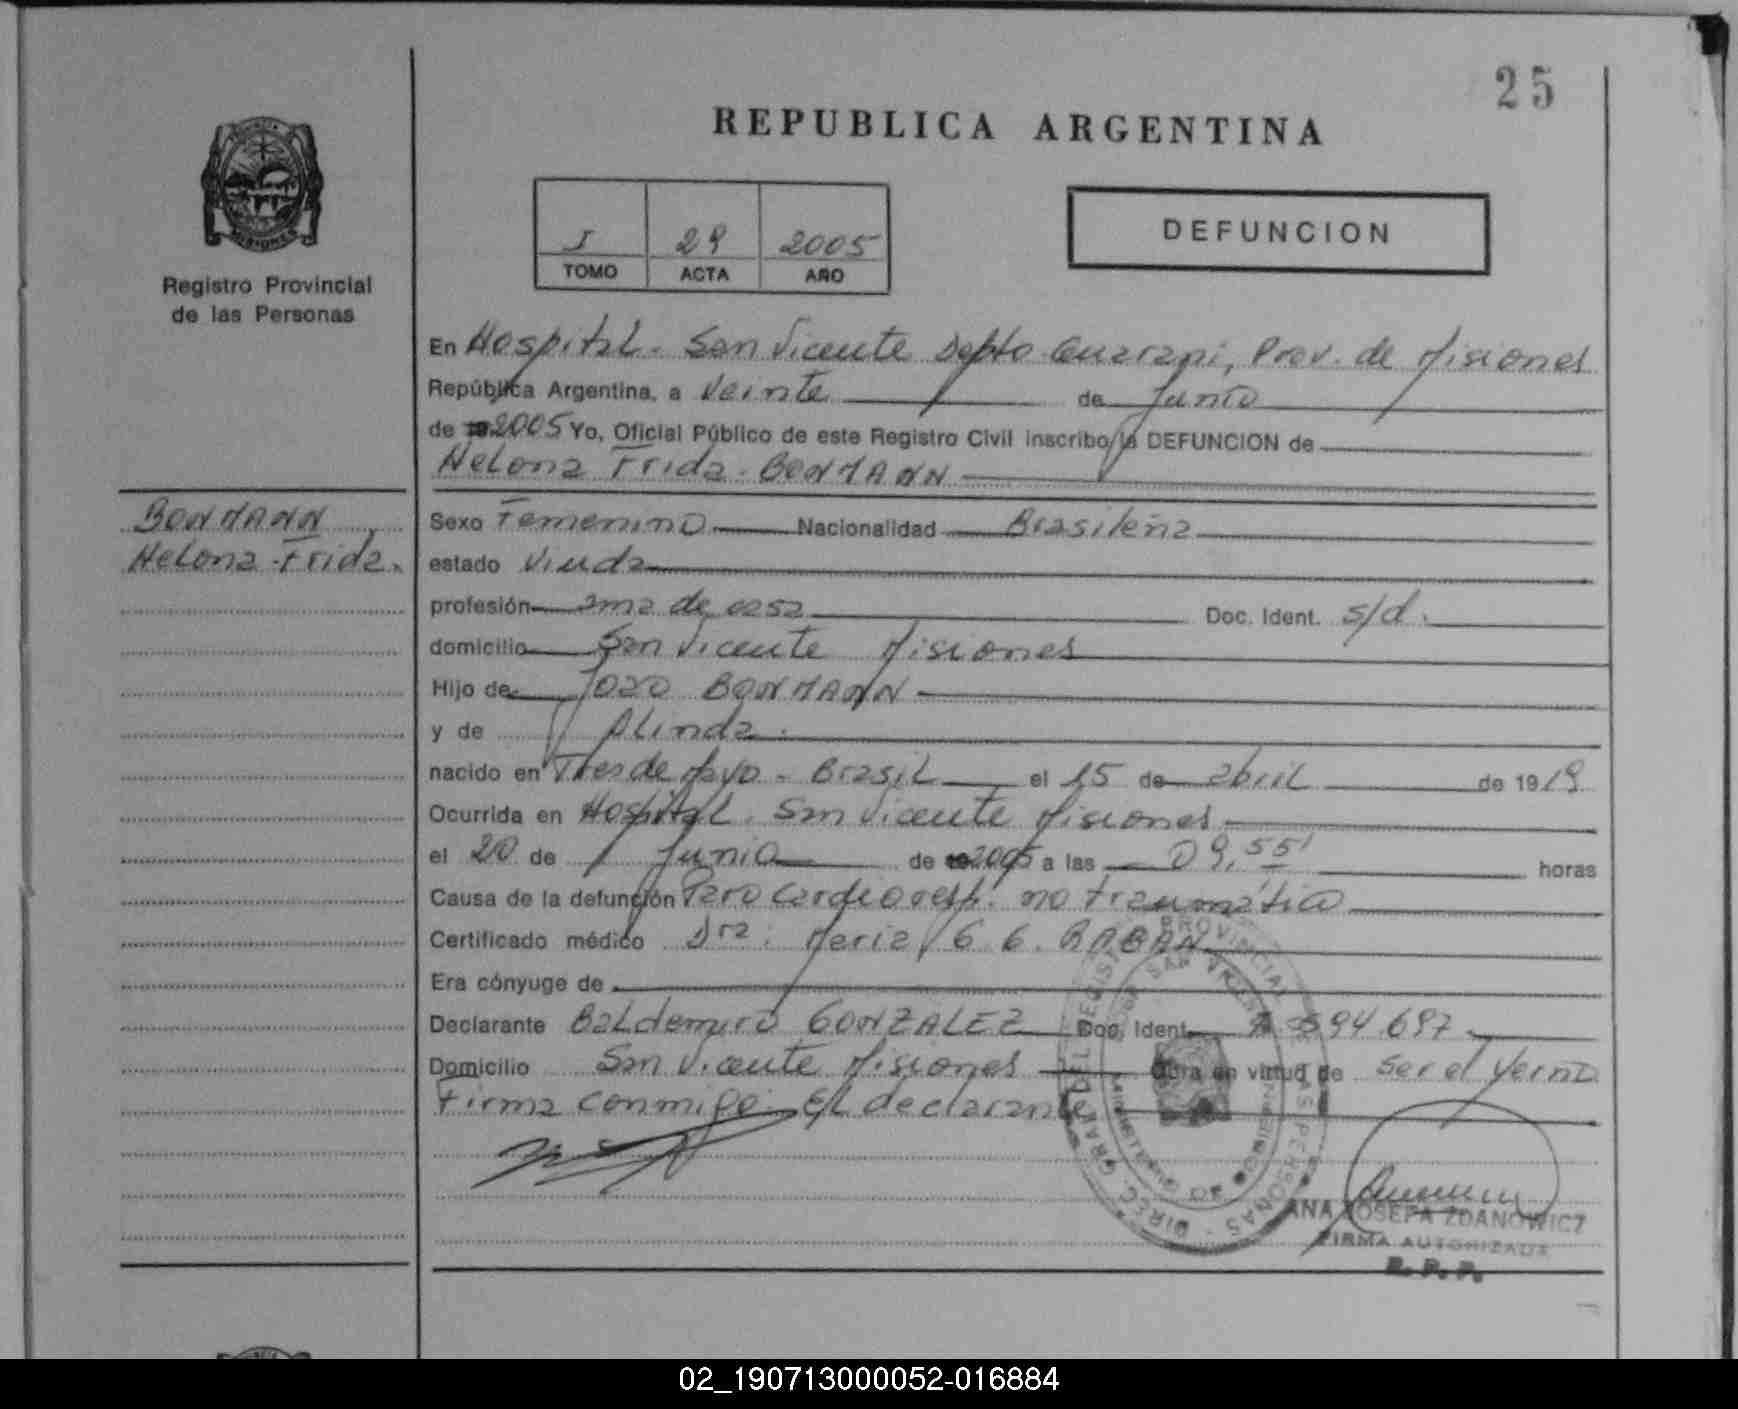 25
REPUBLICA ARGENTINA
I 29 2005
TOMO ACTA AÑO
DEFUNCION
MISIONES
Registro Provincial
de las Personas
En Hospital. San Vicente Depto Guarani, Prov. de Misiones
República Argentina, a Veinte de Junio
de 2005 Yo, Oficial Público de este Registro Civil inscribo la DEFUNCION de
Helona Frida. BONMANN
BONMANN
Helona Frida.
Sexo Femenino Nacionalidad Brasileña
estado Viuda
profesión ama de casa Doc. Ident. s/d.
domicilio San Vicente Misiones
Hijo de Joao BONMANN
y de Alinda.
nacido en Tres de Mayo - Brasil el 15 de abril de 1919
Ocurrida en Hospital. San Vicente Misiones
el 20 de Junio de 2005 a las 09,55' horas
Causa de la defunción Paro cardio resp. no traumático
Certificado médico Dra. Maria G. G.
Era cónyuge de
Declarante Baldemiro GONZALEZ Doc. Ident. 594.697
Domicilio San Vicente Misiones Obra en virtud de ser el yerno
Firma conmigo el declarante
ANA JOSEFA ZDANOWICZ
FIRMA AUTORIZADA
R. P. P.
02_190713000052-016884